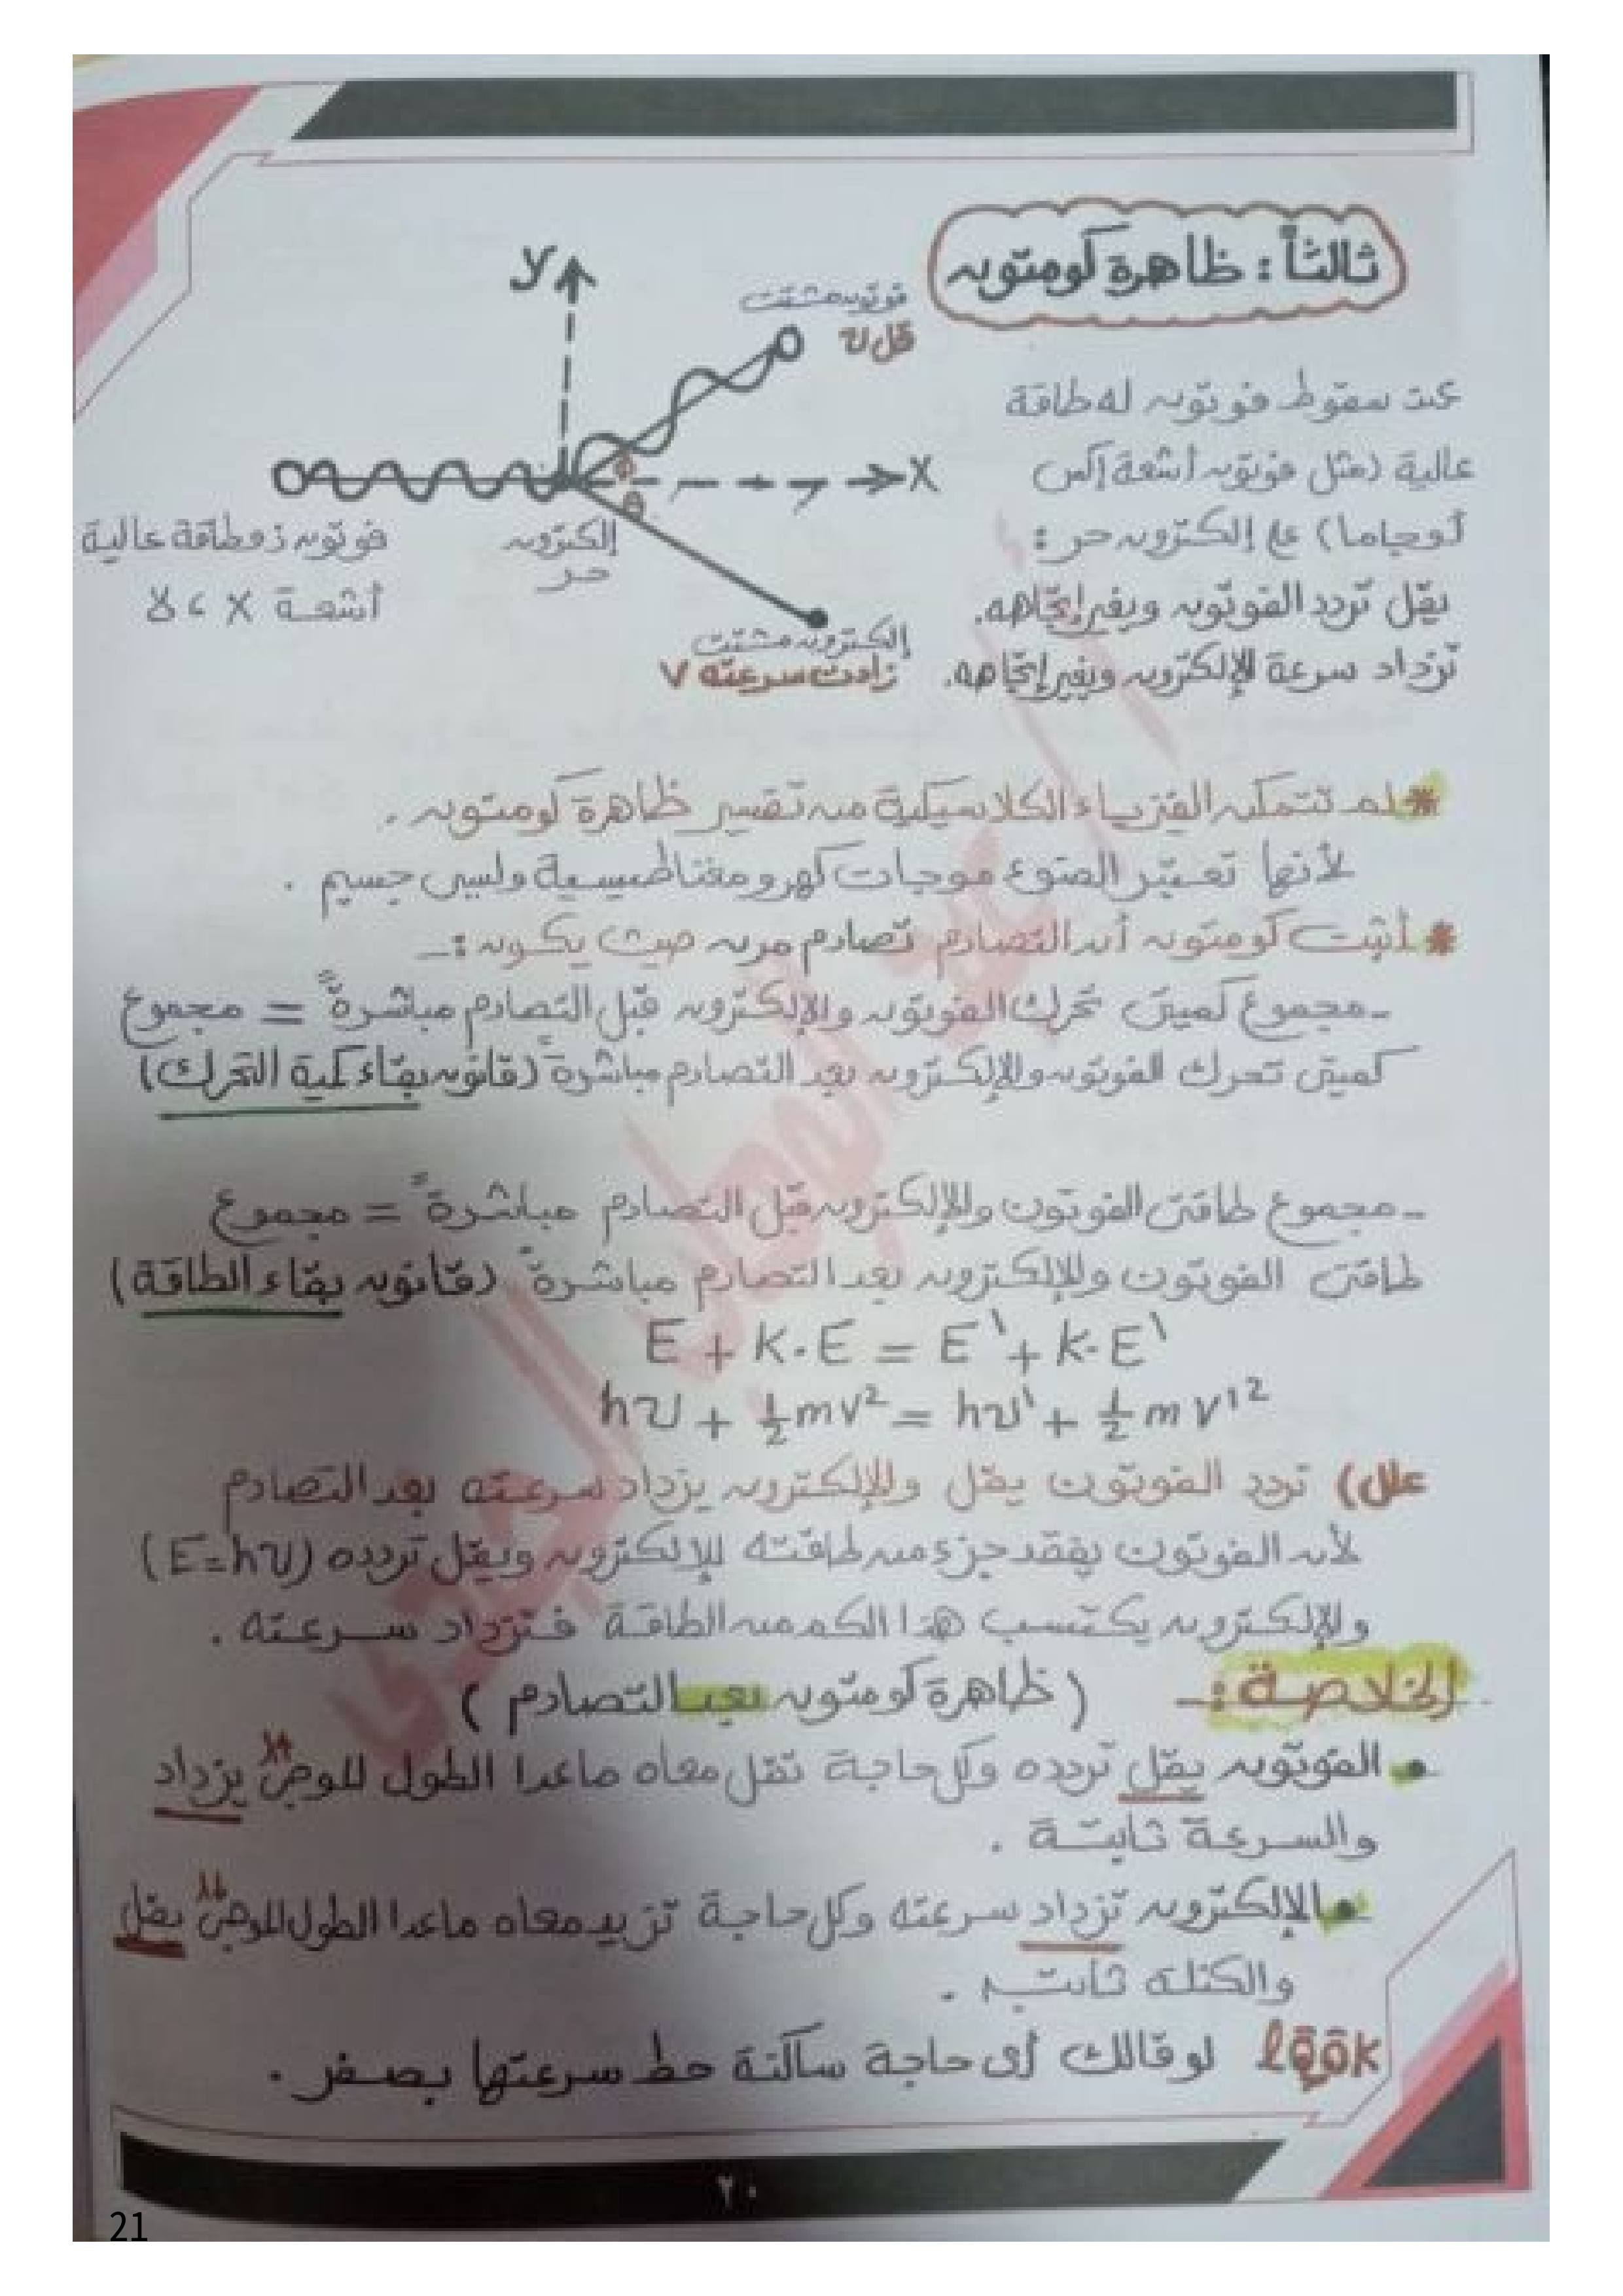 ثالثاً : ظاهرة كومتون
y
فوتون مشتت
قل υ
عند سقوط فوتون له طاقة
عالية (مثل فوتون أشعة إكس
x
Φ
θ
أو جاما) على إلكترون حر :
فوتون ذو طاقة عالية
إلكترون
حر
أشعة X ، γ
يقل تردد الفوتون ويغير إتجاهه.
إلكترون مشتت
زادت سرعته v
تزداد سرعة الإلكترون ويغير إتجاهه.
* لم تتمكن الفيزياء الكلاسيكية من تفسير ظاهرة كومتون .
لأنها تعتبر الضوء موجات كهرومغناطيسية وليس جسيم .
* أثبت كومتون أن التصادم تصادم مرن حيث يكون :-
- مجموع كميتى تحرك الفوتون والإلكترون قبل التصادم مباشرةً = مجموع
كميتى تحرك الفوتون والإلكترون بعد التصادم مباشرةً (قانون بقاء كمية التحرك)
- مجموع طاقتى الفوتون والإلكترون قبل التصادم مباشرةً = مجموع
طاقتى الفوتون والإلكترون بعد التصادم مباشرةً (قانون بقاء الطاقة)
E + K.E = E\ + K.E\
hυ + ½ mv² = hυ\ + ½ m v'²
علل) تردد الفوتون يقل والإلكترون يزداد سرعته بعد التصادم
لأن الفوتون يفقد جزء من طاقته للإلكترون ويقل تردده (E=hυ)
والإلكترون يكتسب هذا الكم من الطاقة فتزداد سرعته .
الخلاصة :- (ظاهرة كومتون بعد التصادم)
• الفوتون يقل تردده وكل حاجة تقل معاه ماعدا الطول الموجى يزداد
والسرعة ثابتة .
• الإلكترون تزداد سرعته وكل حاجة تزيد معاه ماعدا الطول الموجى يقل
والكتلة ثابتة .
look لو قالك أى حاجة ساكنة حط سرعتها بصفر .
٢٠
21